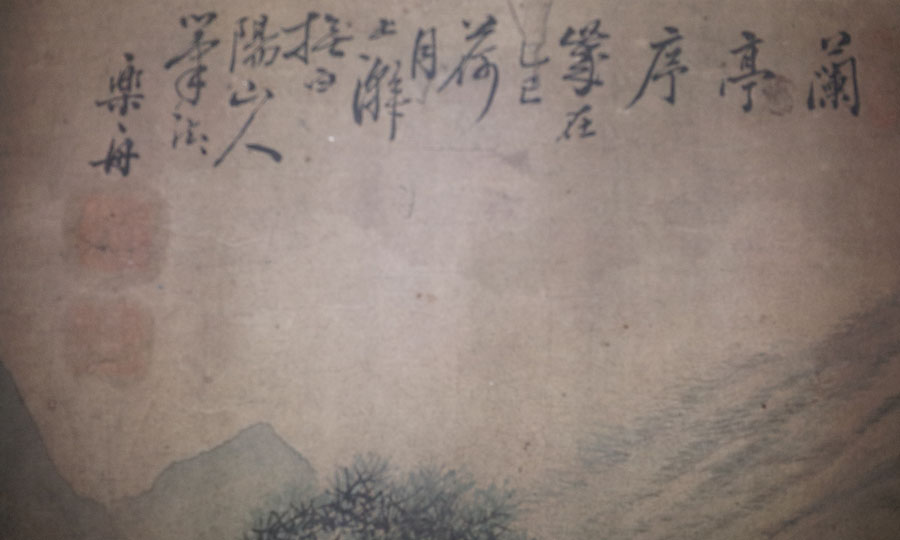 蘭
亭
序
歲在
己巳
荷
月
上澣
撫白
陽山人
筆法
樂舟